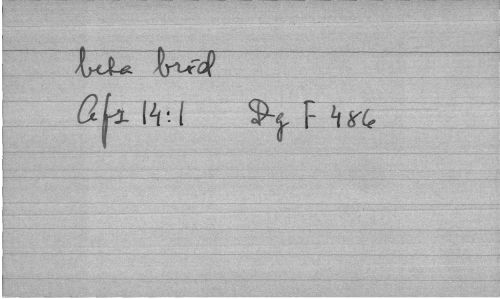 beta bröd
Afs 14:1 Dg F 486